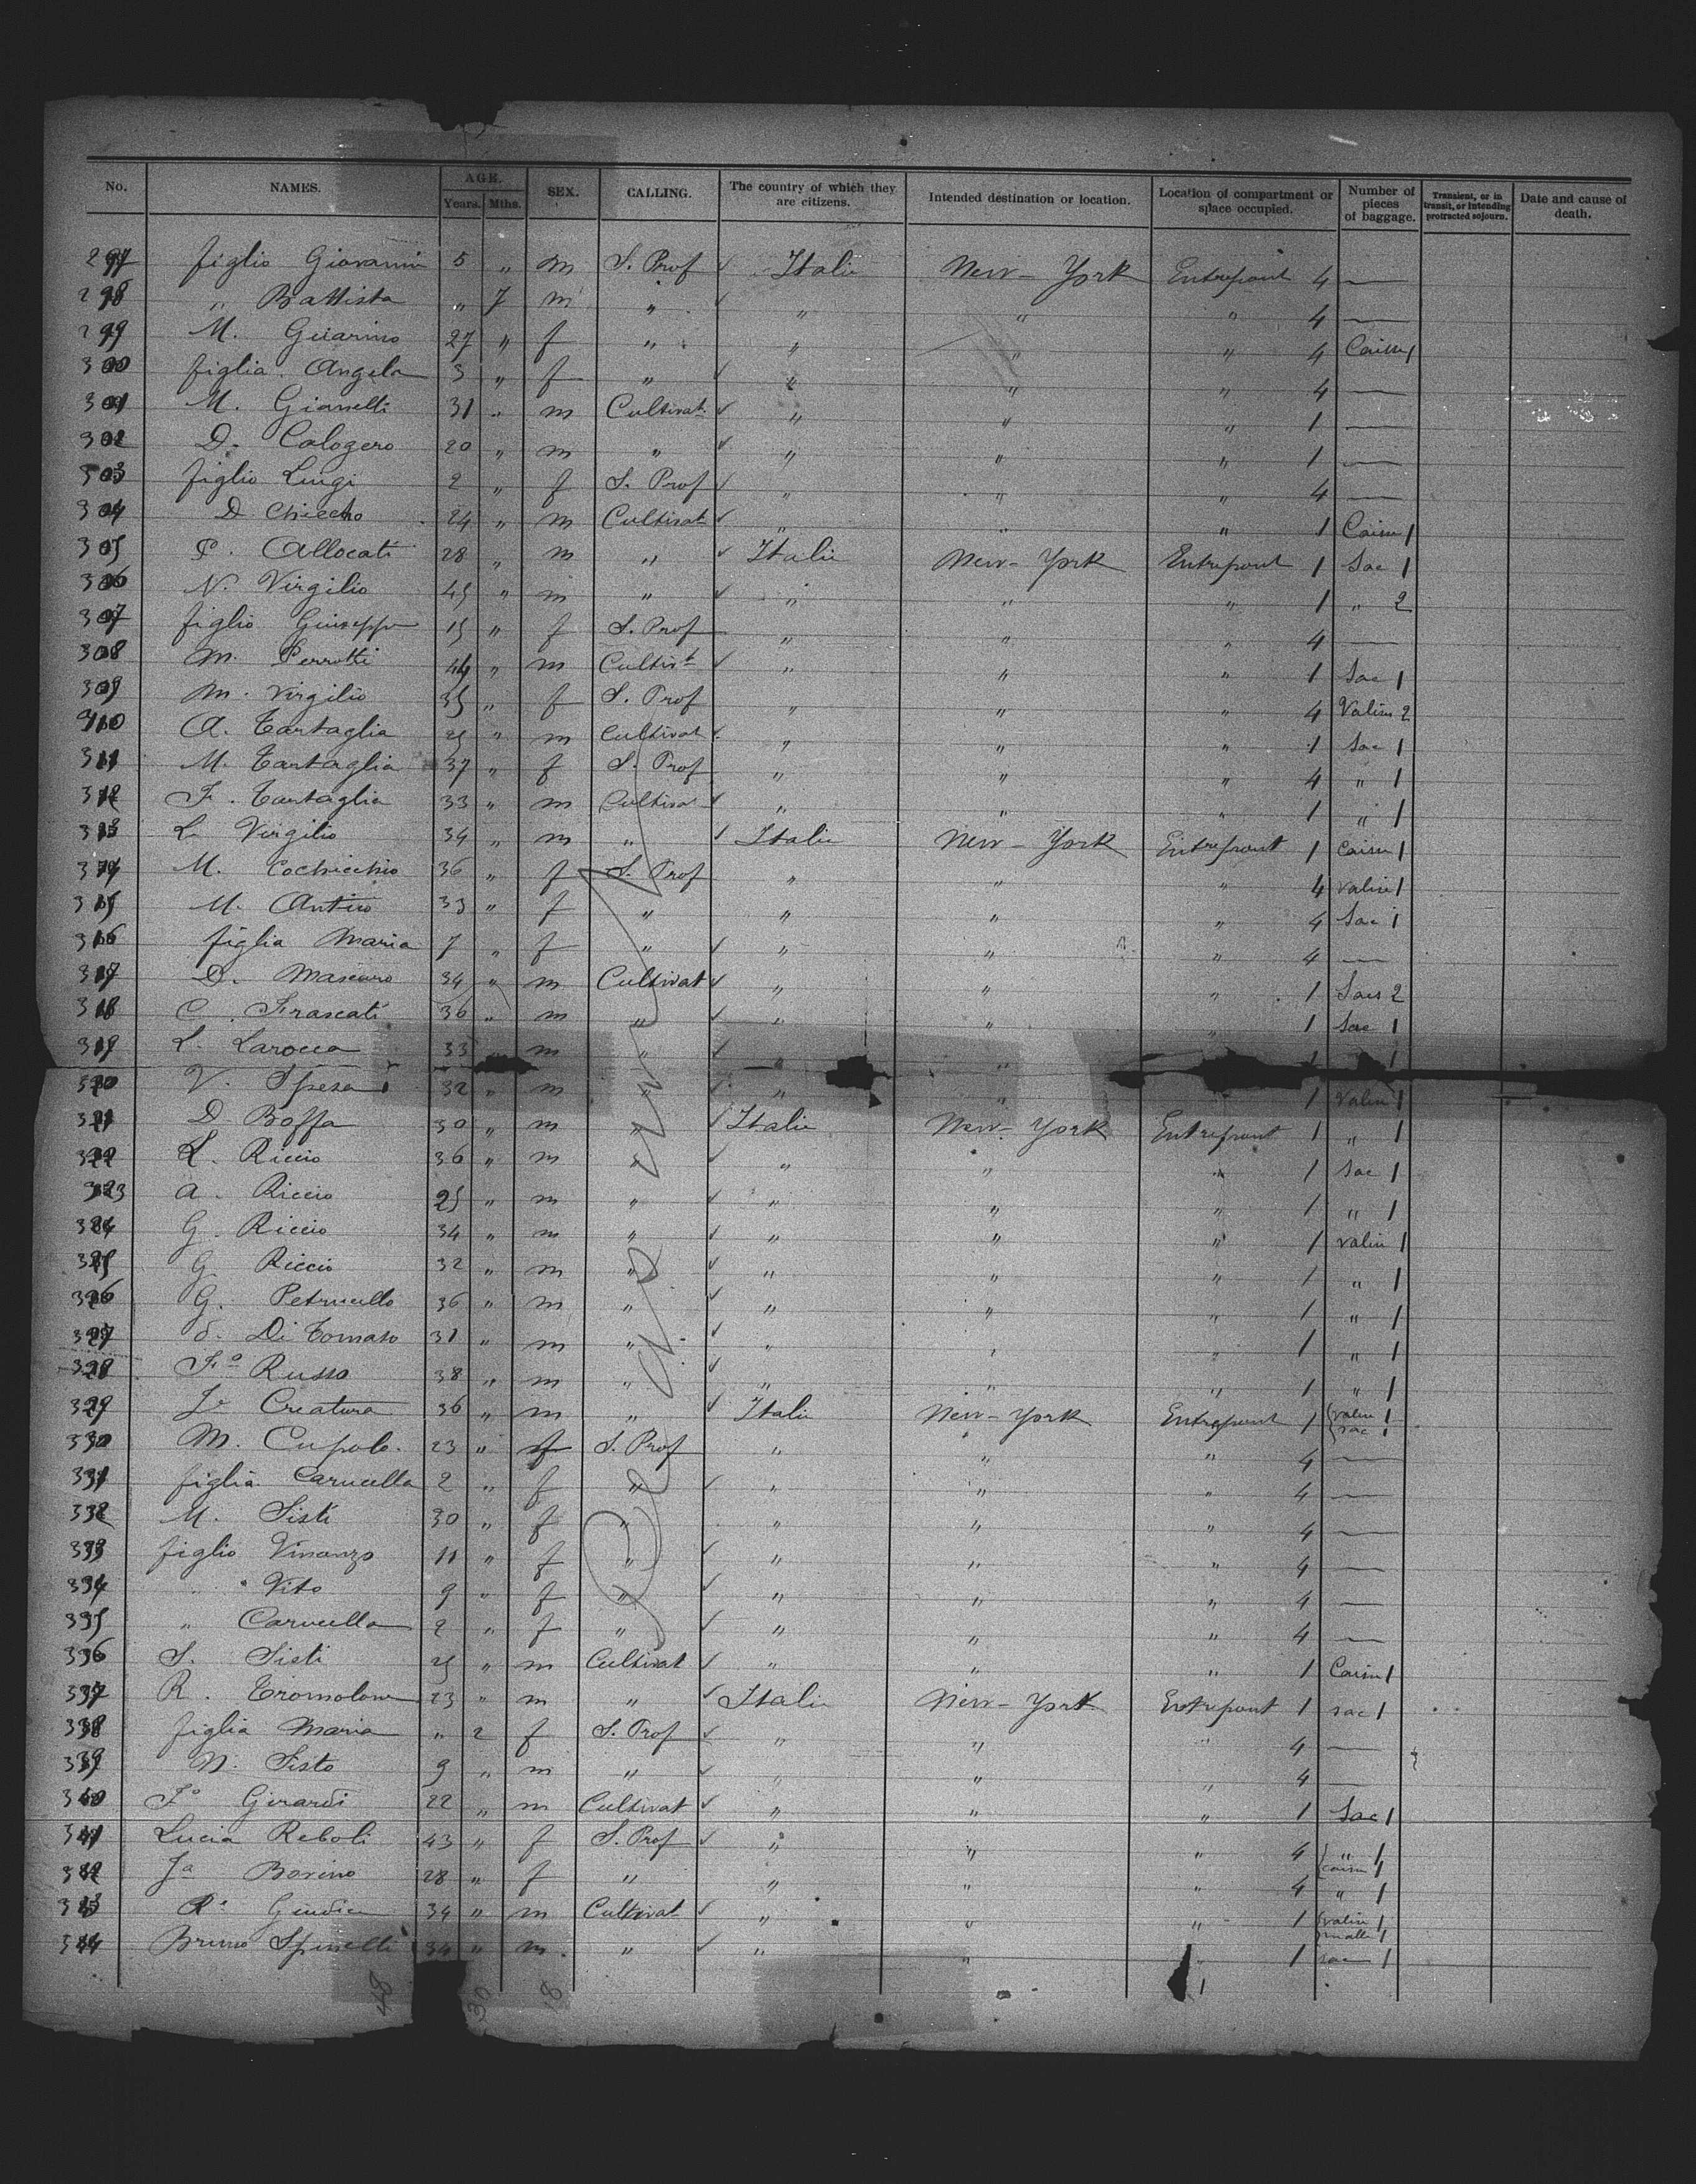 No. NAMES. AGE. Years. Mths. SEX. CALLING. The country of which they are citizens. Intended destination or location. Location of compartment or space occupied. Number of pieces of baggage. Transient, or in transit, or intending protracted sojourn. Date and cause of death.
297 figlio Giovanni 5 " m S. Prof Italie New-York Entrepont 4 —
298 " Battista " 7 m " " " " 4 —
299 M. Guarino 27 " f " " " " 4 1
300 figlia Angela 3 " f " " " " 4 —
301 M. Gianetti 31 " m Cultivat. " " " 1 —
302 D. Calogero 20 " m " " " " 1 —
303 figlio Luigi 2 " f S. Prof " " " 4 —
304 D. Chiecho 24 " m Cultivat " " " 1 1
305 P. Allocati 28 " m " Italie New-York Entrepont 1 Sac 1
306 N. Virgilio 45 " m " " " " 1 " 2
307 figlio Giuseppe 15 " f S. Prof " " " 4 —
308 M. Perrotti 44 " m Cultivt " " " 1 Sac 1
309 M. Virgilio 35 " f S. Prof " " " 4 2
310 A. Tartaglia 25 " m Cultivat " " " 1 Sac 1
311 M. Tartaglia 37 " f S. Prof " " " 4 " 1
312 F. Tartaglia 33 " m Cultivat " " " 1 " 1
313 L. Virgilio 34 " m " Italie New-York Entrepont 1 1
314 M. Cochicchio 36 " f S. Prof " " " 4 1
315 M. Antico 33 " f " " " " 4 Sac 1
316 figlia Maria 7 " f " " " " 4 —
317 D. Mascaro 34 " m Cultivat " " " 1 Sacs 2
318 C. Frascati 36 " m " " " " 1 Sac 1
319 L. Larocca 33 " m " " " 1 1
320 V. Spera 32 " m " " " 1 1
321 D. Boffa 30 " m " Italie New-York Entrepont 1 " 1
322 L. Riccio 36 " m " " " " 1 Sac 1
323 A. Riccio 25 " m " " " " 1 " 1
324 G. Riccio 34 " m " " " " 1 1
325 G. Riccio 32 " m " " " " 1 " 1
326 G. Petrucello 36 " m " " " " 1 " 1
327 Di Tomaso 31 " m " " " " 1 " 1
328 Fo Russo 38 " m " " " " 1 " 1
329 Creatura 36 " m " Italie New-York Entrepont 1 sac 1
330 M. Cupolo 23 " f S. Prof " " " 4 —
331 figlia Carucella 2 " f " " " " 4 —
332 M. Sisti 30 " f " " " " 4 —
333 figlio Vinanzo 11 " f " " " " 4 —
334 " Vito 9 " f " " " " 4 —
335 " Carucella 2 " f " " " " 4 —
336 S. Sisti 25 " m Cultivat " " " 1 1
337 R. 23 " m " Italie New-York Entrepont 1 sac 1
338 figlia Maria " 2 f S. Prof " " " 4 —
339 N. Sisto 9 " m " " " " 4 —
340 Fo Girardi 22 " m Cultivat " " " 1 Sac 1
341 Lucia Reboli 43 " f S. Prof " " " 4 " 1
342 Ja Borino 28 " f " " " " 4 " 1
343 34 " m Cultivat " " " 1 1
344 Bruno Spinelli 34 " m " " " " 1 sac 1
48 30 18